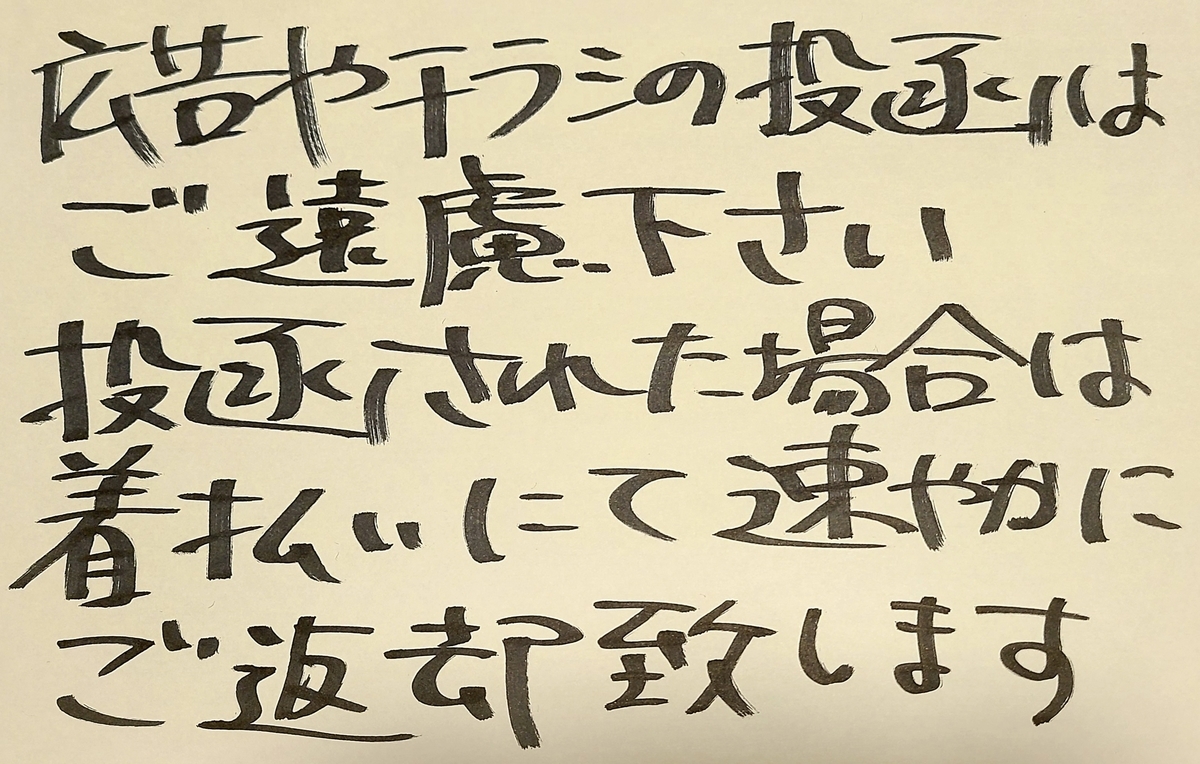 広告やチラシの投函は
ご遠慮下さい
投函された場合は
着払いにて速やかに
ご返却致します